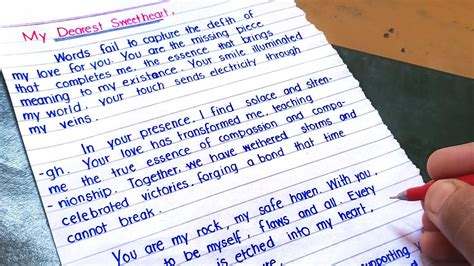 My Dearest Sweetheart,
Words fail to capture the defth of
my love for you. You are the missing piece
that completes me, the essence that brings
meaning to my existence. Your smile illuminated
my world, your touch sends electricity through
my veins.
In your presence, I find solace and stren-
-gh. Your love has transformed me, teaching
me the true essence of compassion and compa-
-nionship. Together, we have wethered storms and
celebrated victories, forging a bond that time
cannot break.
You are my rock, my safe haven. With you,
to be myself, flaws and all. Every
is etched into my heart,
supporting